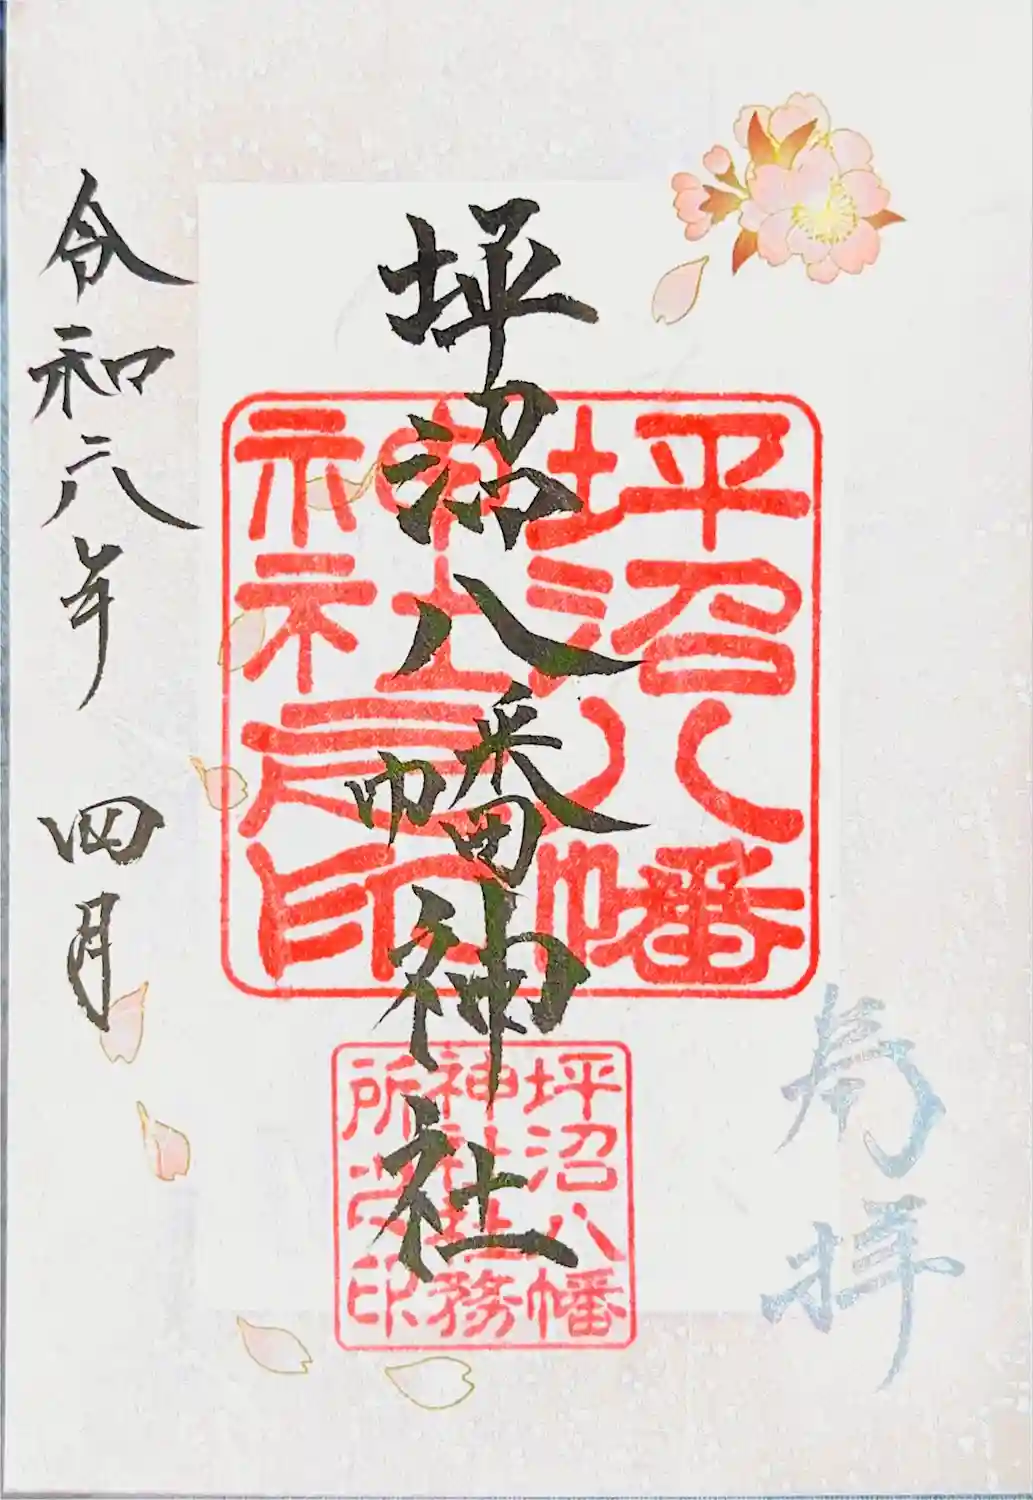 奉拝
坪沼八幡神社
令和六年 四月
坪沼八幡
神社印
坪沼八幡
神社社務
所印